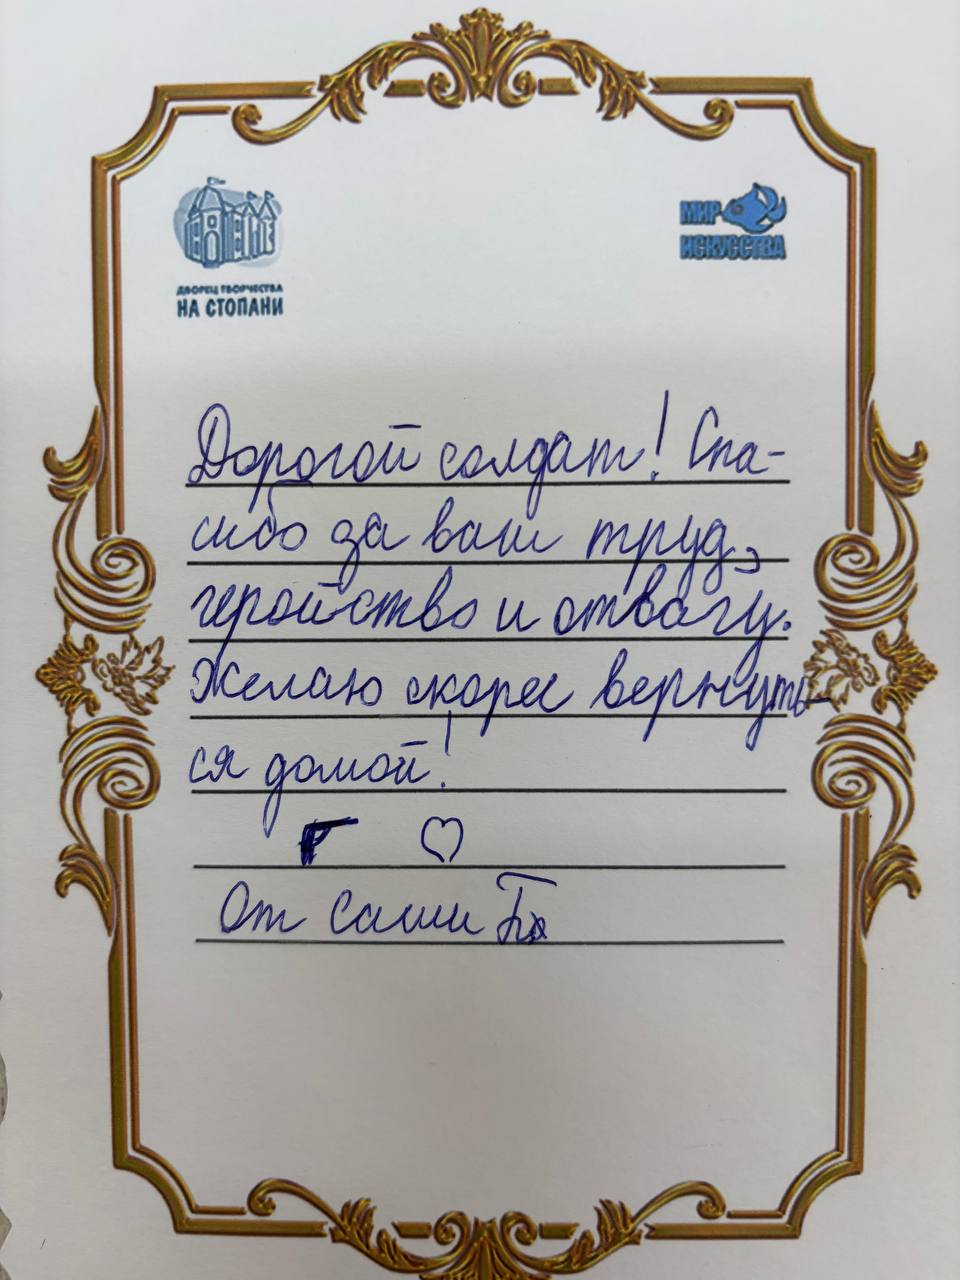 ДВОРЕЦ ТВОРЧЕСТВА
НА СТОПАНИ
МИР
ИСКУССТВА
Дорогой солдат! Спа-
сибо за ваш труд,
геройство и отвагу.
Желаю скорее вернуть-
ся домой!
От Саши